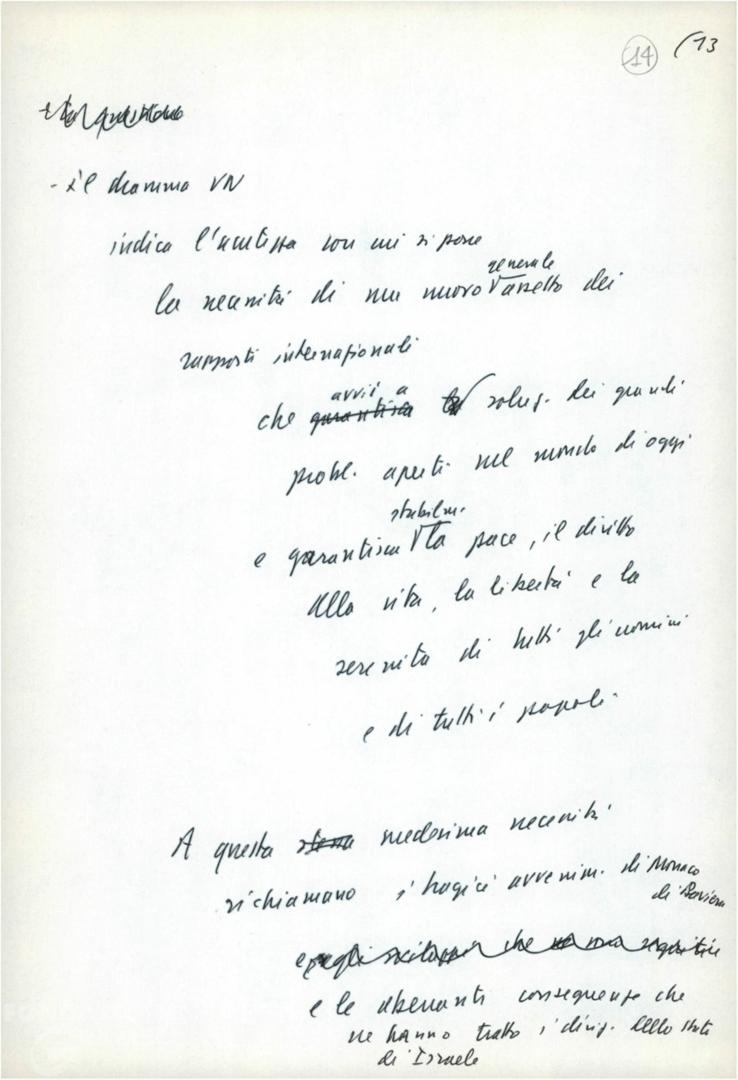 14 (13
- il dramma VN
indica l'acutezza con cui si pone
la necessità di un nuovo generale assetto dei
rapporti internazionali
che garantisca avvii a soluz. dei grandi
probl. aperti nel mondo di oggi
e garantisca stabilm. la pace, il diritto
alla vita, la libertà e la
serenità di tutti gli uomini
e di tutti i popoli.
A questa stessa medesima necessità
richiamano i tragici avvenim. di Monaco
di Baviera
e le aberranti conseguenze che
ne hanno tratto i dirig. dello Stato
di Israele